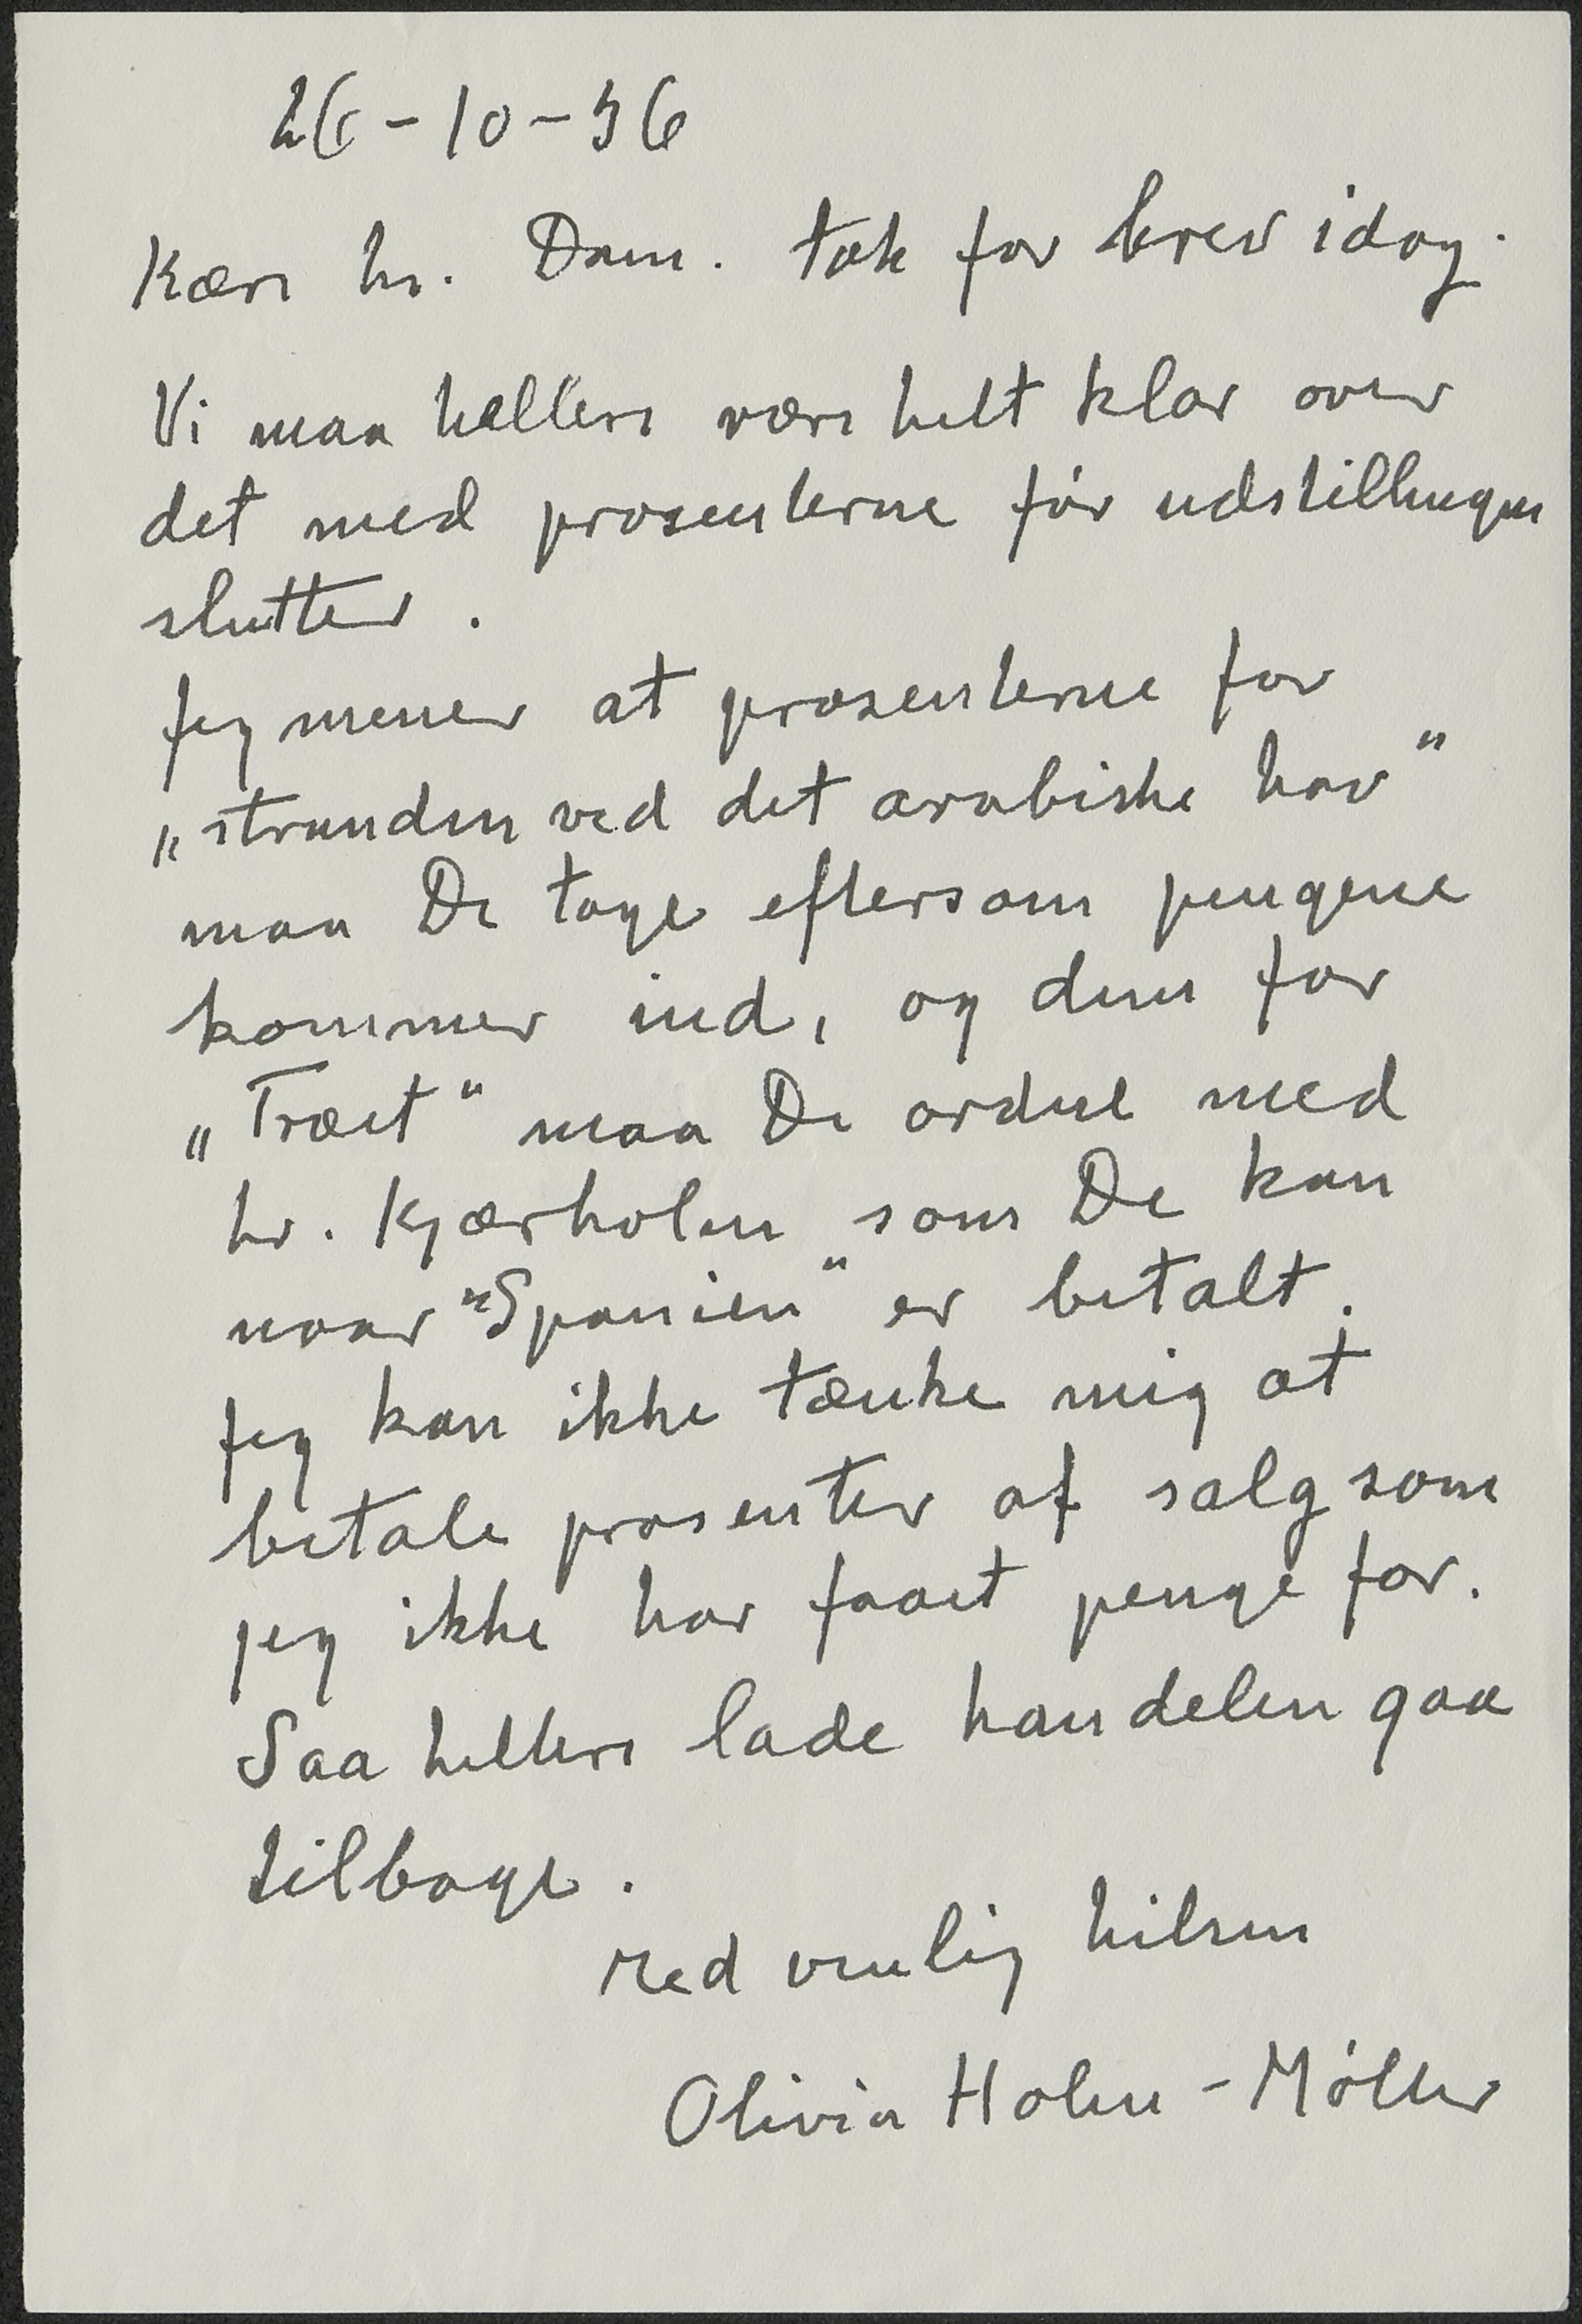 26-10-56
Kære hr. Dam. tak for brev idag.
Vi maa hellere være helt klar over
det med prosenterne før udstillingen
slutter.
Jeg mener at prosenterne for
„stranden ved det arabiske hav"
maa De tage eftersom pengene
kommer ind, og dem for
„Træet" maa De ordne med
hr. Kjærholm som De kan
naar "Spanien" er betalt.
Jeg kan ikke tænke mig at
betale prosenter af salg som
jeg ikke har faaet penge for.
Saa hellere lade handelen gaa
tilbage.
Med venlig hilsen
Olivia Holm-Møller